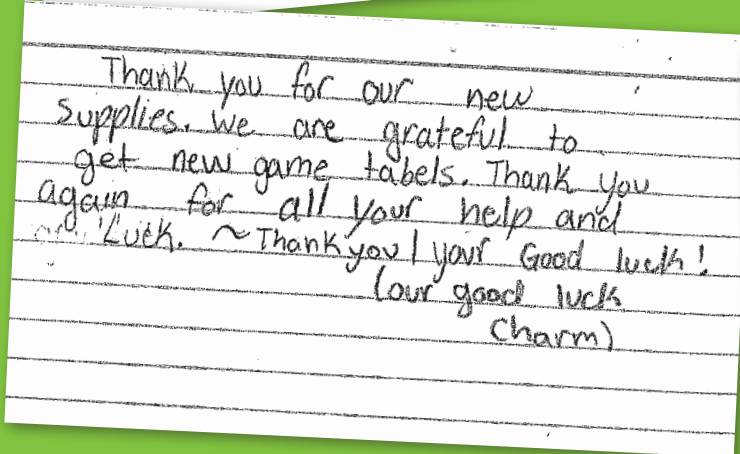 Thank you for our new
supplies. We are grateful to
get new game tabels. Thank you
again for all your help and
Luck. ~Thank you / your Good luck!
(our good luck
Charm)